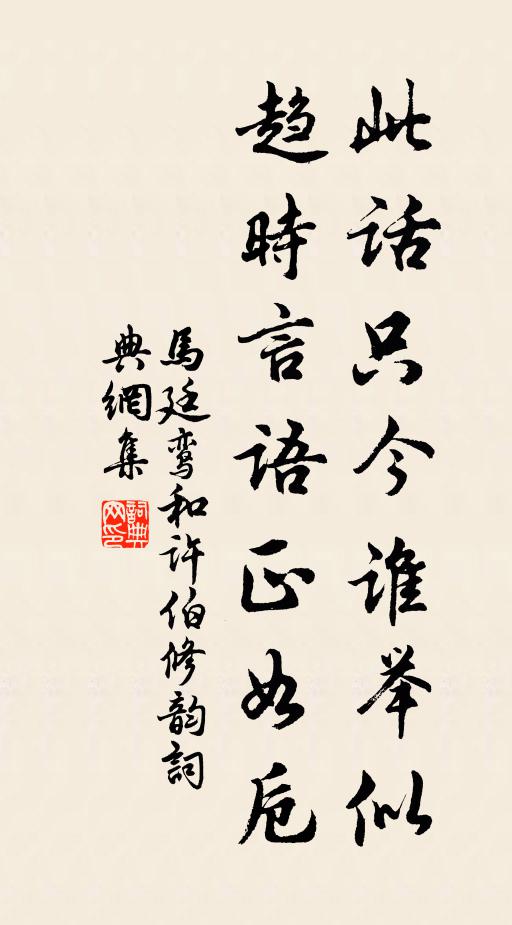 此话只今谁举似
趋時言語正如卮
馬廷鸾和许伯修韵詞
典網集
詞典网印